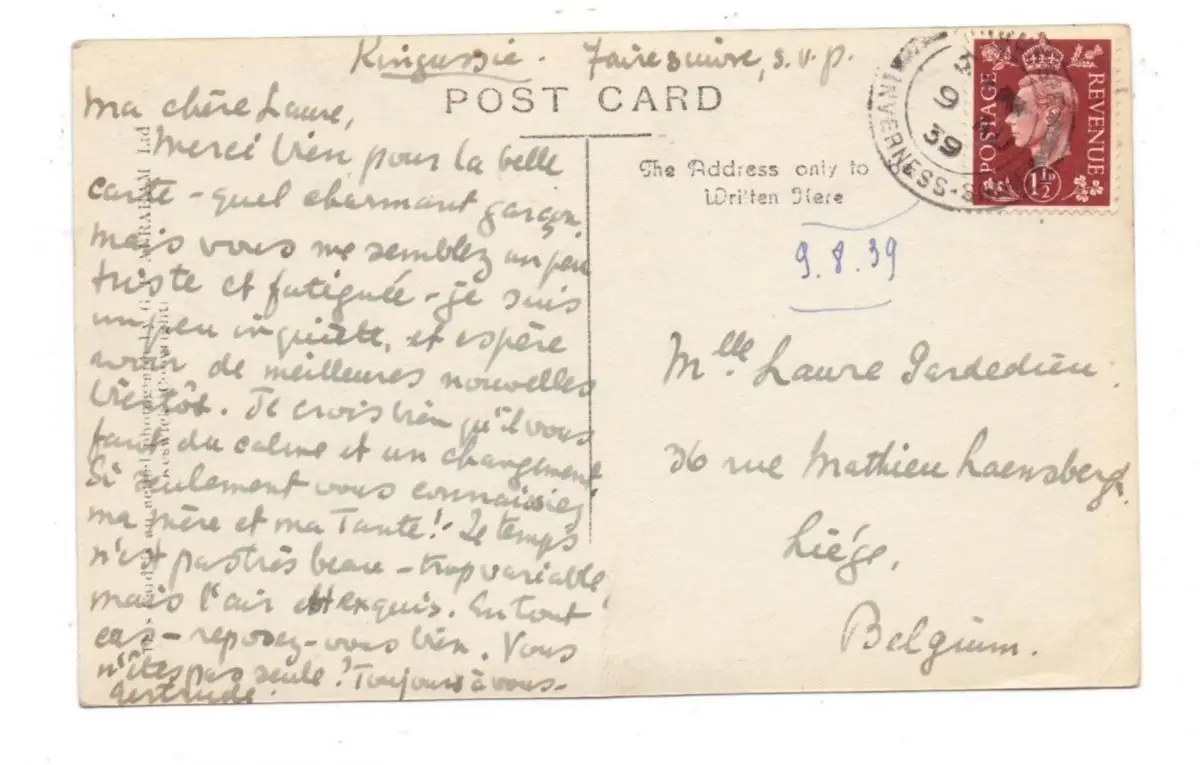 Kingussie. Faire suivre, s.v.p.
POST CARD
Ma chère Laure,
Merci bien pour la belle
carte - quel charmant garçon,
mais vous me semblez un peu
triste et fatiguée - je suis
un peu inquiète, et espère
avoir de meilleures nouvelles
bientôt. Je crois bien qu'il vous
faut du calme et un changement
Si seulement vous connaissiez
ma mère et ma Tante! - Le temps
n'est pas très beau - trop variable,
mais l'air exquis. En tout
cas - reposez-vous bien. Vous
n'êtes pas seule! Toujours à vous -
Gertrude.
ABRAHAM Ltd
Keswick
The Address only to
Written Here
9.8.39
Mlle. Laure
36 rue Mathieu Laensberg.
Liége,
Belgium.
INVERNESS-S
9
39
POSTAGE
REVENUE
1½D